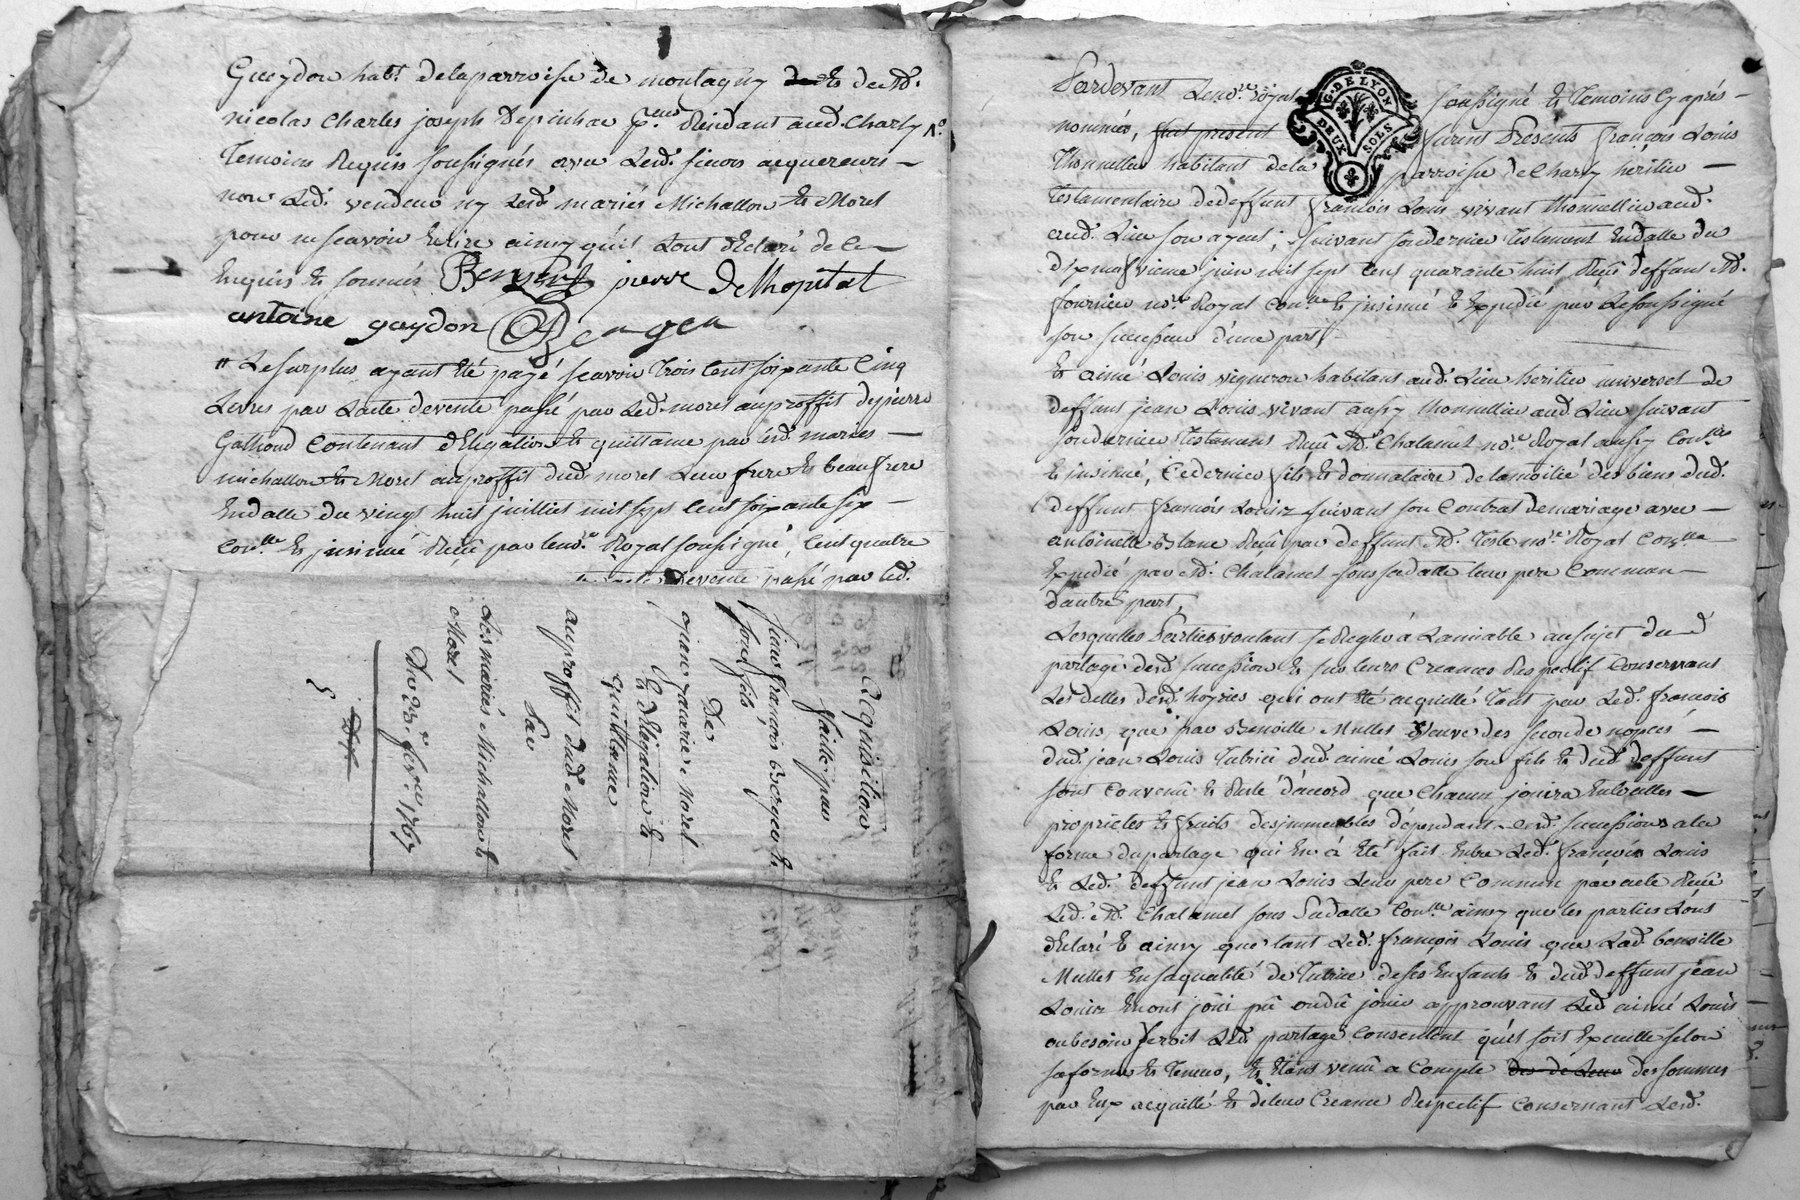 Gueydon habt. delaparroisse de montagny de Me.
nicolas Charles joseph Depinhac pen. Residant aud. Charly
Temoins Requis soussignés avec Lesd. sieurs acquereurs
non Led. vendeur ny Lesd. mariés Michallon & Morel
pour ne sçavoir Ecrire ainsy qu'ils Lont déclaré de ce
Enquis & sommés pierre Delhopital
antoine gaydon
Le surplus ayant Eté payé sçavoir Trois Cent soixante Cinq
Livres par Lacte devente passé par Led. morel auproffit depierre
Gathoud Contenant déLegation & quittance par Lesd. mariés
michallon & Morel auproffit dud. morel Leur frere & beaufrere
Endatte du vingt huit juilliet mil sept Cent soixante six
Conlle. & jnsinué Reçu par lenore. Royal soussigné, Cent quatre
devente passé par led.
Acquisition
faitte par
sieurs françois & 
son fils
De
Morel
& déLegation &
quittance
Par
auproffit dud. Morel
Les mariés Michallon &
Morel
Du 23e. fevr. 1767
G. DE LYON
DEUX SOLS
Pardevant Lenore. royal soussigné & Temoins Cy après
nommés, fut present furent Presents françois Louis
Thonnellier habitant dela parroisse de Charly héritier
Testamentaire dedeffunt françois Louis vivant thonnellier aud.
aud. Lieu son ayeul, suivant sondernier Testament Endatte du
dixneufvieme juin mil sept Cent quarante huit Reçu deffunt Me.
fournier nore. Royal Conlle. & jnsinué & Expedié par Lesoussigné
son successeur d'une part
Et aimé Louis vigneron habitant aud. Lieu héritier universel de
deffunt jean Louis vivant aussy thonnellier aud Lieu suivant
sondernier Testament Reçu Me. Chalamel nore. Royal aussy Conlle.
& jnsinué, Cedernier fils & donnataire delamoitié des biens dud.
deffunt françois Louis suivant son Contrat demariage avec
antoinette Reçu par deffunt Me. nore. Royal Conlle.
Expedié par Me. Chalamel sous sadatte leur pere Commun
dautre part,
Lesquelles Parties voulant se Regler à Lamiable ausujet du
partage desd. succession & sur leurs Creances Respectif Conservant
Les dettes desd. hoyries qui ont Eté acquitté Tant par Led. françois
Louis, que par Benoitte Mullet Veuve des seconde nopces
dud. jean Louis Tutrice dud. aimé Louis son fils & dud. deffunt
sont Convenu & Resté d'accord que Chacun jouira Entoutes
proprietés & fruits desjmmeubles dépendant desd. successions ala
forme dupartage qui En a Eté fait Entre Led. françois Louis
& Led. deffunt jean Louis Leur pere Commun par acte Reçu
Led. Me. Chalamel sous Sadatte Conlle. ainsy que les parties Lont
déclaré & ainsy que tant Led. françois Louis, que Lad. benoitte
Mullet Ensaqualité de Tutrice deses Enfants & dud. deffunt jean
Louis Enont joui pû oudû jouir approuvant Led. aimé Louis
aubesoin seroit Led. partage Consentent qu'il soit Executté selon
saforme & Teneur, & Etant venû a Compte des sommes
par Eux acquitté & deleur Creance Respectif Conservant Lesd.